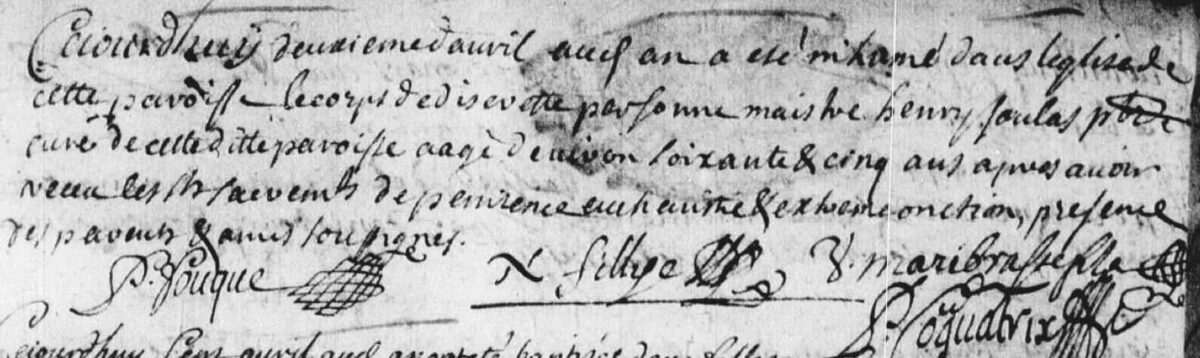 Cejourdhuy deuxieme d'avril audt an a eté inhumé dans leglise de
cette paroisse le corps de discrette personne maistre henry soulas pbre
curé de cette ditte paroisse aagé denviron soixante & cinq ans apres avoir
receu les Sts sacremts de penitence euchaistie & extreme onction, presence
des parents & amis sousignés.
P. Fouque
P. Coquatrix
Cejourdhuy avril audt an a eté baptisée dans